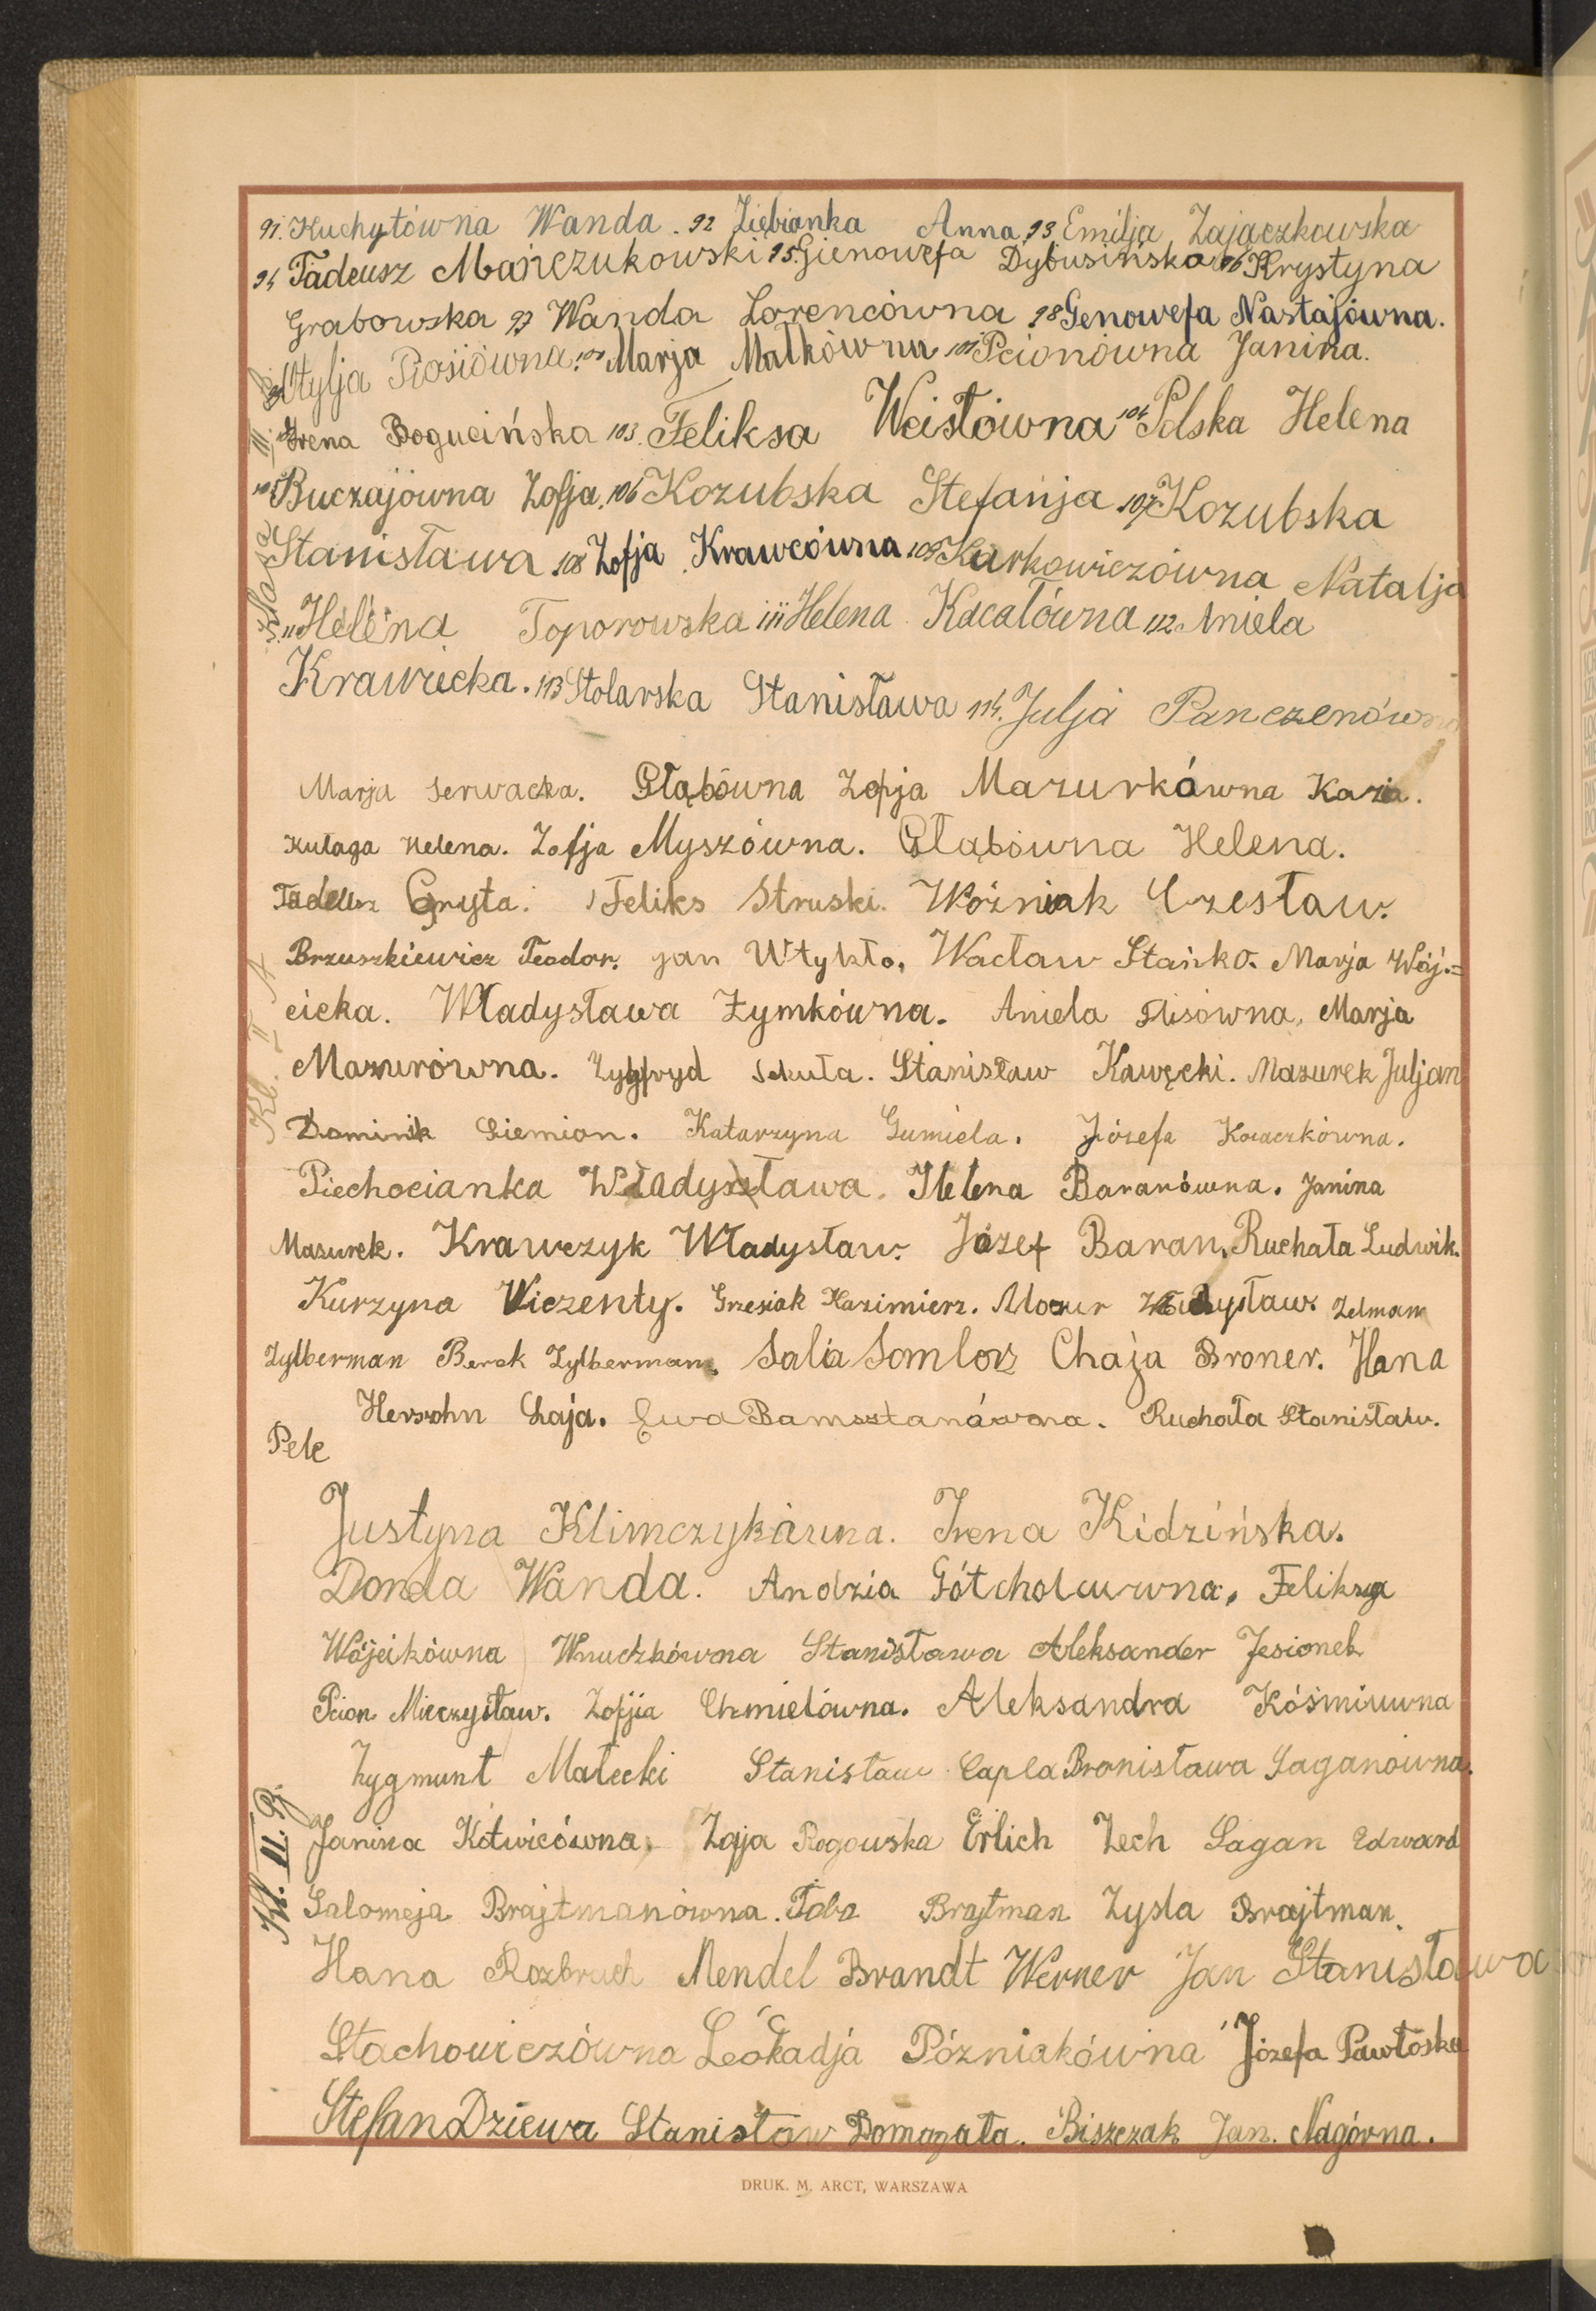 91. Kuchytówna Wanda. 92 Ziębianka Anna 93 Emilja Zajączkowska
94 Tadeusz Mańczukowski 95. Gienowefa Dybusińska 96 Krystyna
Grabowska 97 Wanda Lorencówna 98 Genowefa Nastajówna.
Otylja Piosiówna. 100 Marja Małkówna 101 Pcionówna Janina.
Irena Bogucińska 103. Feliksa Weisłówna 104 Polska Helena
105 Buczajówna Zofja. 106 Kozubska Stefanja 107 Kozubska
Stanisława 108 Zofja Krawcówna 109 Karkowiczówna Natalja
Helena Toporowska 111 Helena Kacałówna 112 Aniela
Krawiecka. 113 Stolarska Stanisława 114. Julja Panczenówna
Marja Serwacka. Głąbówna Zofja Mazurkówna Kazia.
Kułaga Helena. Zofja Myszówna. Głąbówna Helena.
Tadeusz Gryta. Feliks Struski. Woźniak Czesław.
Brzuszkiewicz Teodor. Jan Wtykło. Wacław Stańko. Marja Wój-
cicka. Władysława Żymkówna. Aniela Flisówna, Marja
Mazurówna. Zygfryd Sekuła. Stanisław Kawęcki. Mazurek Juljan
Dominik Siemion. Katarzyna Gumiela. Józefa Kozaczkówna.
Piechocianka Władysława. Helena Baranówna. Janina
Mazurek. Krawczyk Władysław. Józef Baran. Ruchała Ludwik.
Kurzyna Wiczenty. Grzesiak Kazimierz. Mazur Władysław Zelman
Zylberman Berek Zylberman. Sala Somlov Chaja Broner. Hana
Herszohn Chaja. Ewa Bamsztanówna. Ruchała Stanisław.
Pelc
Justyna Klimczykówna. Irena Kidzińska.
Donda Wanda. Andzia Gótcholcuwna, Feliksa
Wójcikówna Wnuczkówna Stanisława Aleksander Jesionek
Pcion Mieczysław. Zofjia Chmielówna. Aleksandra Kóśmiuwna
Zygmunt Małecki Stanisław Capla Bronisława Saganówna.
Janina Kotwicówna, Zofja Rogowska Erlich Zech Sagan Edward
Salomeja Brajtmanówna. Toba Brajtman Zysla Brajtman.
Hana Rozbruch Mendel Brandt Werner Jan Stanisława
Stachowiczówna Leókadja Pózniakówna Józefa Pawłoska
Stefan Dziewa Stanisław Domagała. Biszczak Jan. Nagórna.
Kl. II A
Kl. II. B.
DRUK. M. ARCT, WARSZAWA